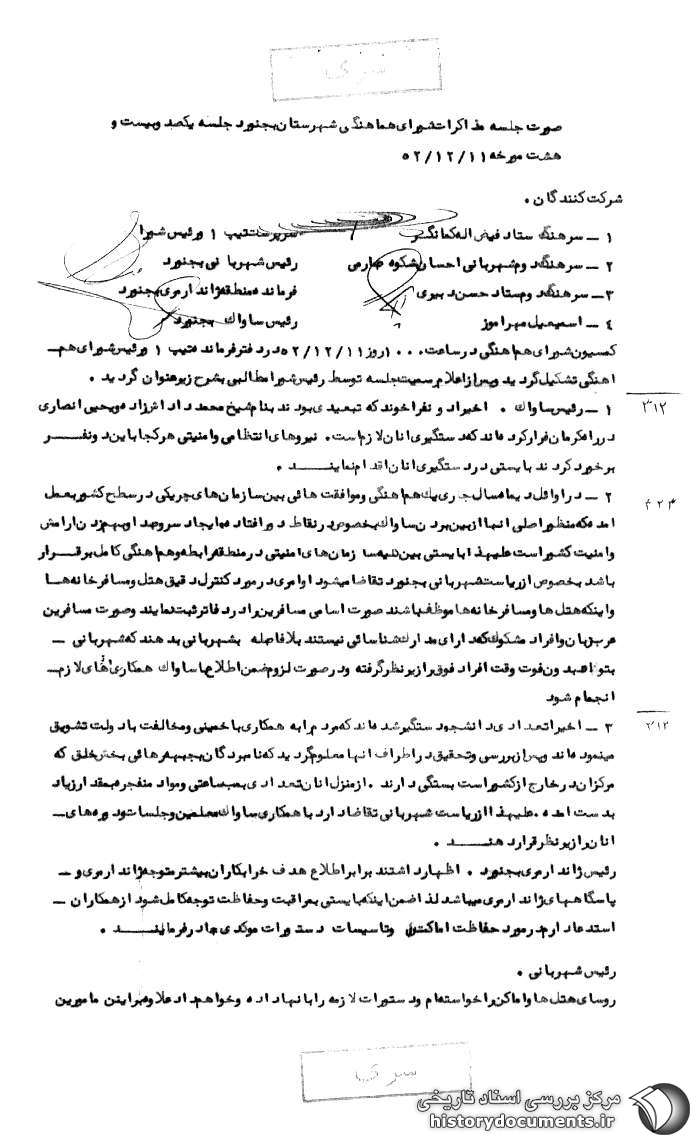 سری
صورت جلسه مذاکرات شورای هماهنگی شهرستان بجنورد جلسه یکصد و بیست و
هشت مورخه ۵۲/۱۲/۱۱
شرکت کنندگان .
۱ ــ سرهنگ ستاد فیض اله کمانگر سرپرست تیپ ۱ و رئیس شورا
۲ ــ سرهنگ دوم شهربانی احسان شکوه صارمی رئیس شهربانی بجنورد
۳ــ سرهنگ دوم ستاد حسن دبیری فرمانده منطقه ژاندارمری بجنورد
۴ ــ اسمعیل مهرآموز رئیس ساواک بجنورد
کمسیون شورای هم اهنگی در ساعت ۱۰۰۰ روز ۵۲/۱۲/۱۱ در دفتر فرمانده تیپ ۱ و رئیس شورای هم ــ
اهنگی تشکیل گردید و پس از اعلام رسمیت جلسه توسط رئیس شورا مطالبی بشرح زیر عنوان گردید .
۱ ــ رئیس ساواک . اخیرا دو نفر اخوند که تبعیدی بودند بنام شیخ محمد و یحیی انصاری
در راه کرمان فرار کرده اند که دستگیری انان لازم است . نیروهای انتظامی و امنیتی هر کجا با این دو نفــر
برخورد کردند بایستی در دستگیری انان اقدام نماینــــد .
۳۱۲
۲ ــ در اوائل دیماه سال جاری یک هم اهنگی و موافقت هائی بین سازمان های چریکی در سطح کشور بعمل
امده که منظور اصلی انها از بین بردن ساواک بخصوص در نقاط دور افتاده و ایجاد سر و صدا و بهم زدن ارامش
و امنیت کشور است علیهذا بایستی بین کلیه سا زمان های امنیتی در منطقه رابطه و هم اهنگی کامل بر قــرار
باشد بخصوص از ریاست شهربانی بجنورد تقاضا میشود اوامری در مورد کنترل دقیق هتل و مسافر خانه هــا
و اینکه هتل ها و مسافر خانه ها موظف باشند صورت اسامی مسافرین را در دفاتر ثبت نمایند و صورت مسافرین
عرب زبان و افراد مشکوک که دارای مدارک شناسائی نیستند بلافاصله بشهربانی بدهند که شهربانی ــ
بتواند بدون فوت وقت افراد فوق را زیر نظر گرفته و در صورت لزوم ضمن اطلاع با ساواک همکاری های لازم ــ
انجام شود
۳۱۲
۳ ــ اخیرا تعدادی دانشجو دستگیر شده اند که مردم را به همکاری با خمینی و مخالفت با دولت تشویق
مینموده اند و پس از بررسی و تحقیق در اطراف انها معلوم گردید که نامبردگان بجبهه رهائی بخش خلق که
مرکز ان در خارج از کشور است بستگی دارند . از منزل انان تعدادی بمب ساعتی و مواد منفجره بمقدار زیاد
بدست امده . علیهذا از ریاست شهربانی تقاضا دارد با همکاری ساواک معلمین و جلسات دوره های ــ
انان را زیر نظر قرار دهنــــد .
رئیس ژاندارمری بجنورد . اظهار داشتند برابر اطلاع هدف خرابکاران بیشتر متوجه ژاندارمری و ــ
پاسگاههای ژاندارمری میباشد لذا ضمن اینکه بایستی بمراقبت و حفاظت توجه کامل شود از همکاران ــ
استدعا دارم در مورد حفاظت اماکن و تاسیسات دستورات موکدی صادر فرماینـــــد .
رئیس شهربانی .
روسای هتل ها و اماکن را خواسته ام و دستورات لازمه را بانها داده و خواهم داد علاوه بر این مامورین
سری
مرکز بررسی اسناد تاریخی
historydocuments.ir